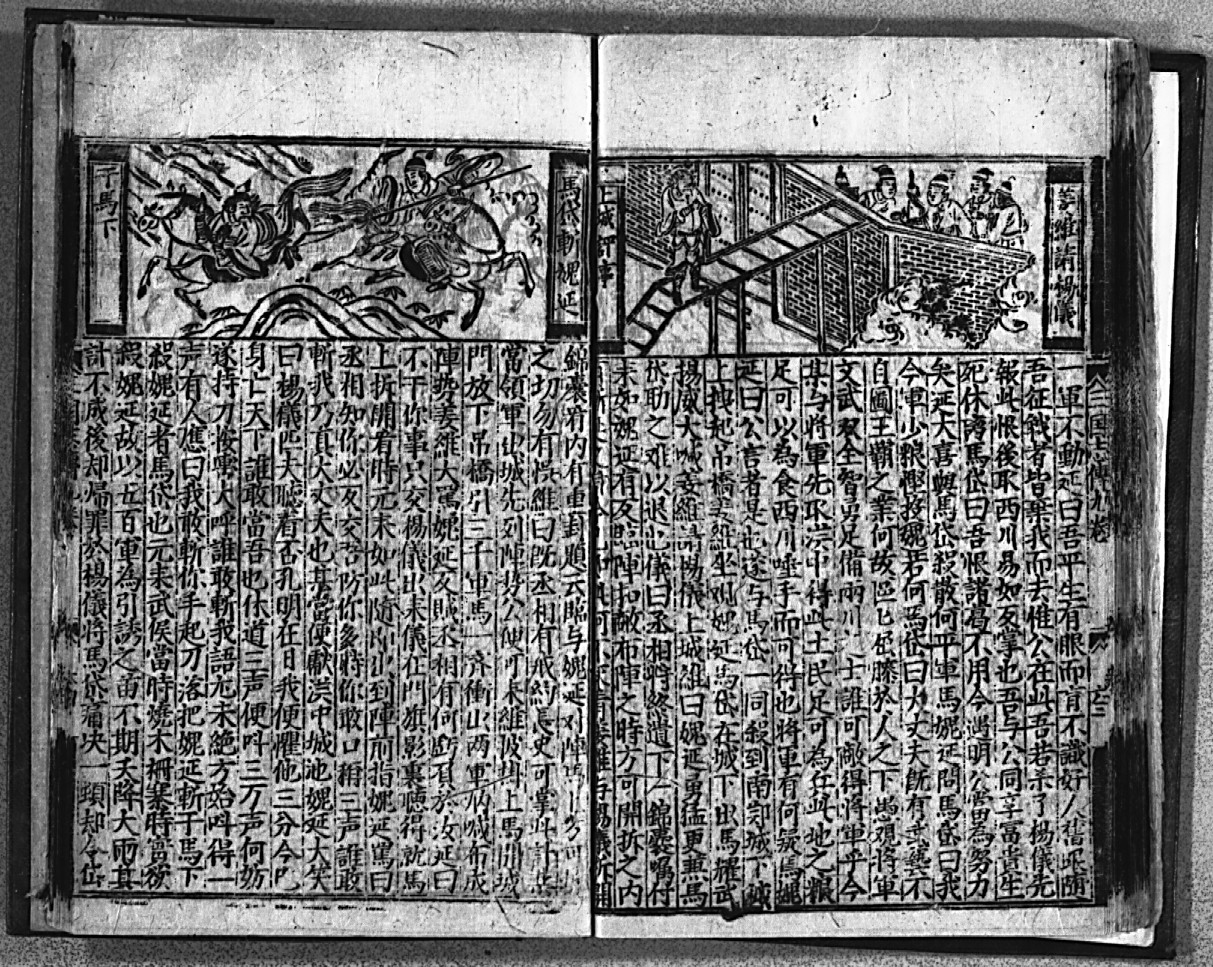 姜維請楊儀
上城
一軍不動延曰吾平生有眼而盲不識好人
吾征戰者皆棄我而去惟公在此吾若杀了楊儀先
報此恨後取西川易如反掌也吾与公同享富貴生
死休馬岱曰吾恨諸葛不用今遇明公當努力
矣延大喜與馬岱殺散何平軍馬魏延問馬岱曰我
今軍少粮若何馬岱曰大丈夫既有武藝不
自圖王霸之業何故區匕屈膝於人之下愚观將軍
文武双全智勇足備兩川之士誰可敵得將軍乎今
某与將軍先取漢中得此土民足可為兵此地之粮
足可以為食西川唾手而可得也將軍有何疑焉魏
延曰公言者是也遂与馬岱一同殺到南鄭城下
上拽起吊橋姜維坐見魏延馬岱在城下出馬耀武
揚威大喊姜維請楊儀上城維曰魏延勇猛更兼馬
岱助之难以退也儀曰丞相臨終遺下一錦囊嘱付
某如魏延有反臨陣扣敵布陣之時方可開拆之内
三国志傳九卷
馬岱斬魏延
于馬下
錦囊府内有重封題云臨与魏延对陣
之切勿有悮維曰既丞相有戒約長史可掌
當領軍出城先列陣勢公便可來維披掛上馬開城
門放下吊橋引三千軍馬一齊衝出兩軍吶喊布成
陣势姜維大罵魏延反賊丞相有何虧負於汝延曰
不干你事只交楊儀出來儀在門旗影裏聽得就馬
上拆開看時元來如此随即出到陣前指魏延罵曰
丞相知你必反交吾防你多時你敢口稱三声誰敢
斬我乃真大丈夫也吾當便獻漢中城池魏延大笑
曰楊儀匹夫聽着吾孔明在日我便懼他三分今已
身亡天下誰敢當吾也休道三声便叫三万声何妨
遂持刀按轡大呼誰敢斬我語尤未絶方始叫得一
声有人應曰我敢斬你手起刀落把魏延斬于馬下
殺魏延者馬岱也元來武侯當時燒木柵寨時實欲
殺魏延故以五百軍為引誘之苗不期天降大雨其
計不成後却帰罪於楊儀將馬岱痛决一頓却令岱